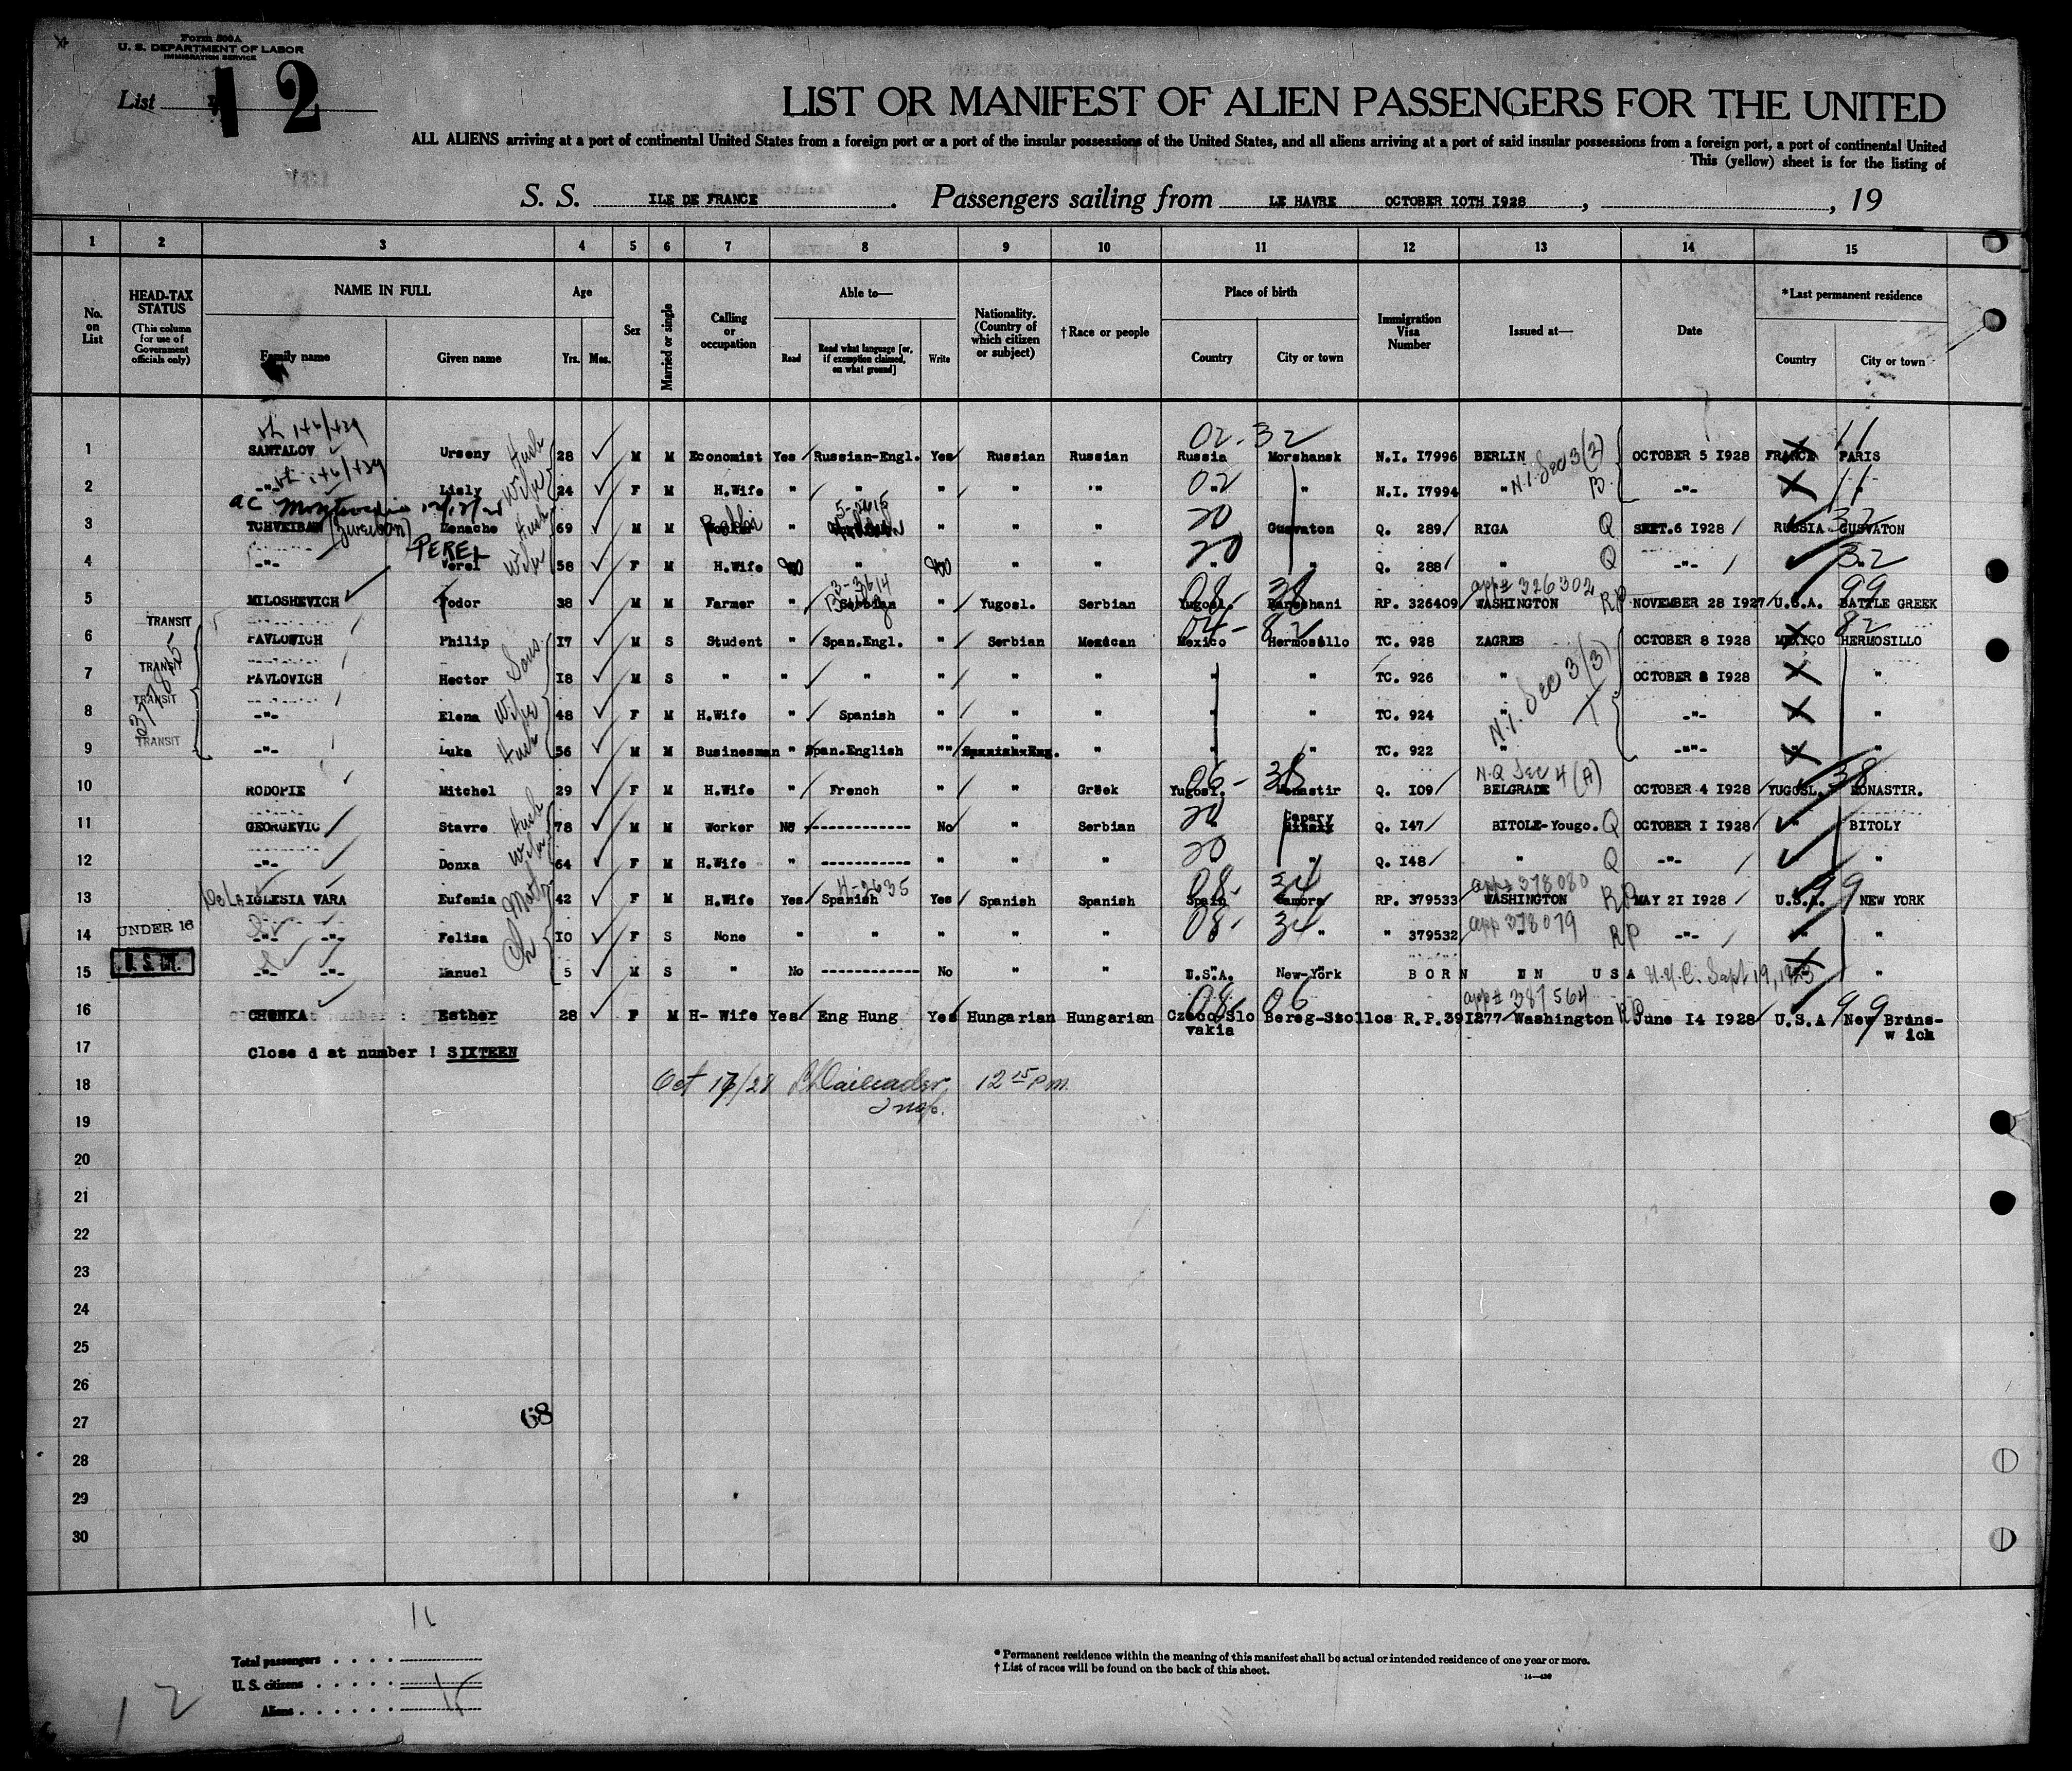 Form 500A
U. S. DEPARTMENT OF LABOR
IMMIGRATION SERVICE
List 12
LIST OR MANIFEST OF ALIEN PASSENGERS FOR THE UNITED
ALL ALIENS arriving at a port of continental United States from a foreign port or a port of the insular possessions of the United States, and all aliens arriving at a port of said insular possessions from a foreign port, a port of continental United
This (yellow) sheet is for the listing of
S. S. ILE DE FRANCE. Passengers sailing from LE HAVRE OCTOBER IOTH I928, , 19
1 2 3 4 5 6 7 8 9 10 11 12 13 14 15
No. on List
HEAD-TAX STATUS (This column for use of Government officials only)
NAME IN FULL
Family name Given name
Age
Yrs. Mos.
Sex
Married or single
Calling or occupation
Able to—
Read Read what language [or, if exemption claimed, on what ground] Write
Nationality. (Country of which citizen or subject)
†Race or people
Place of birth
Country City or town
Immigration Visa Number
Issued at—
Date
*Last permanent residence
Country City or town
02-32
1 SANTALOV Urseny Husb 28 M M Economist Yes Russian-Engl. Yes Russian Russian Russia Morshansk N.I. I7996 BERLIN N.I. Sec 3(2) OCTOBER 5 I928 FRANCE PARIS 11
2 -"- Lisly Wife 24 F M H.Wife " " " " " 02 " " N.I. I7994 " B. -"- " 11
3 TCHVEIBAN (Zweibon) Zenache Husb 69 M M " " " " 20 Gusvaton Q. 289 RIGA Q SEPT.6 I928 RUSSIA GUSVATON 32
4 -"- PEREL Wife 58 F M H.Wife No " No " " 20 " " Q. 288 " Q -"- 32
app# 326302
5 MILOSHEVICH Fodor 38 M M Farmer " Serbian " Yugosl. Serbian Yugosl. 08 38 RP. 326409 WASHINGTON RP NOVEMBER 28 I927 U.S.A. 99 BATTLE GREEK
TRANSIT
6 PAVLOWICH Philip Sons I7 M S Student " Span.Engl. " Serbian Mexican Mexico 04-82 Hermosillo TC. 928 ZAGREB OCTOBER 8 I928 MEXICO 82 HERMOSILLO
TRANSIT
7 PAVLOVICH Hector I8 M S " " " " " " " " TC. 926 " N.I. Sec 3(3) OCTOBER 8 I928 "
TRANSIT
8 -"- Elena Wife 48 F M H.Wife " Spanish " " " " " TC. 924 " -"- "
TRANSIT
9 -"- Luka Husb 56 M M Businesman " Span.English " " " " " TC. 922 " -"- "
N.Q Sec 4(A)
10 RODOPIE Mitchel 29 F M H.Wife " French " " Greek Yugosl. 06-38 Monastir Q. IO9 BELGRADE OCTOBER 4 I928 YUGOSL. 38 MONASTIR.
11 GEORGEVIC Stavre Husb 78 M M Worker No ------------- No " Serbian 20 Capary Q. I47 BITOLE-Yougo. Q OCTOBER I I928 " BITOLY
12 -"- Donxa Wife 64 F M H.Wife " ----------- " " " 20 " Q. I48 " Q -"- "
4-2635 app# 378080
13 De La IGLESIA VARA Eufemia Moth 42 F M H.Wife Yes Spanish Yes Spanish Spanish Spain 08-34 Zamora RP. 379533 WASHINGTON RP MAY 2I I928 U.S.A. 99 NEW YORK
UNDER 16 app 378079
14 -"- -"- Felisa Ch IO F S None " " " " " 08-34 " " 379532 " RP -"- " "
U. S. CIT.
15 -"- -"- Manuel 5 M S " No ------------ No " " U.S.A. New-York BORN EN USA N.Y.C. Sept 19, 1923 "
app# 387564
16 CHONKA Esther 28 F M H- Wife Yes Eng Hung Yes Hungarian Hungarian Czeco-Slo vakia 08-06 Bereg-Szollos R.P.39I277 Washington RP June I4 I928 U.S.A 99 New Bruns- w ick
17 Close d at number ! SIXTEEN
18 Oct 17/28 12 15 P.M.
19 Insp.
20
21
22
23
24
25
26
27 68
28
29
30
16
Total passengers . . . .
U. S. citizens . . . . .
Aliens . . . . . . 15
12
* Permanent residence within the meaning of this manifest shall be actual or intended residence of one year or more.
† List of races will be found on the back of this sheet.
14—430